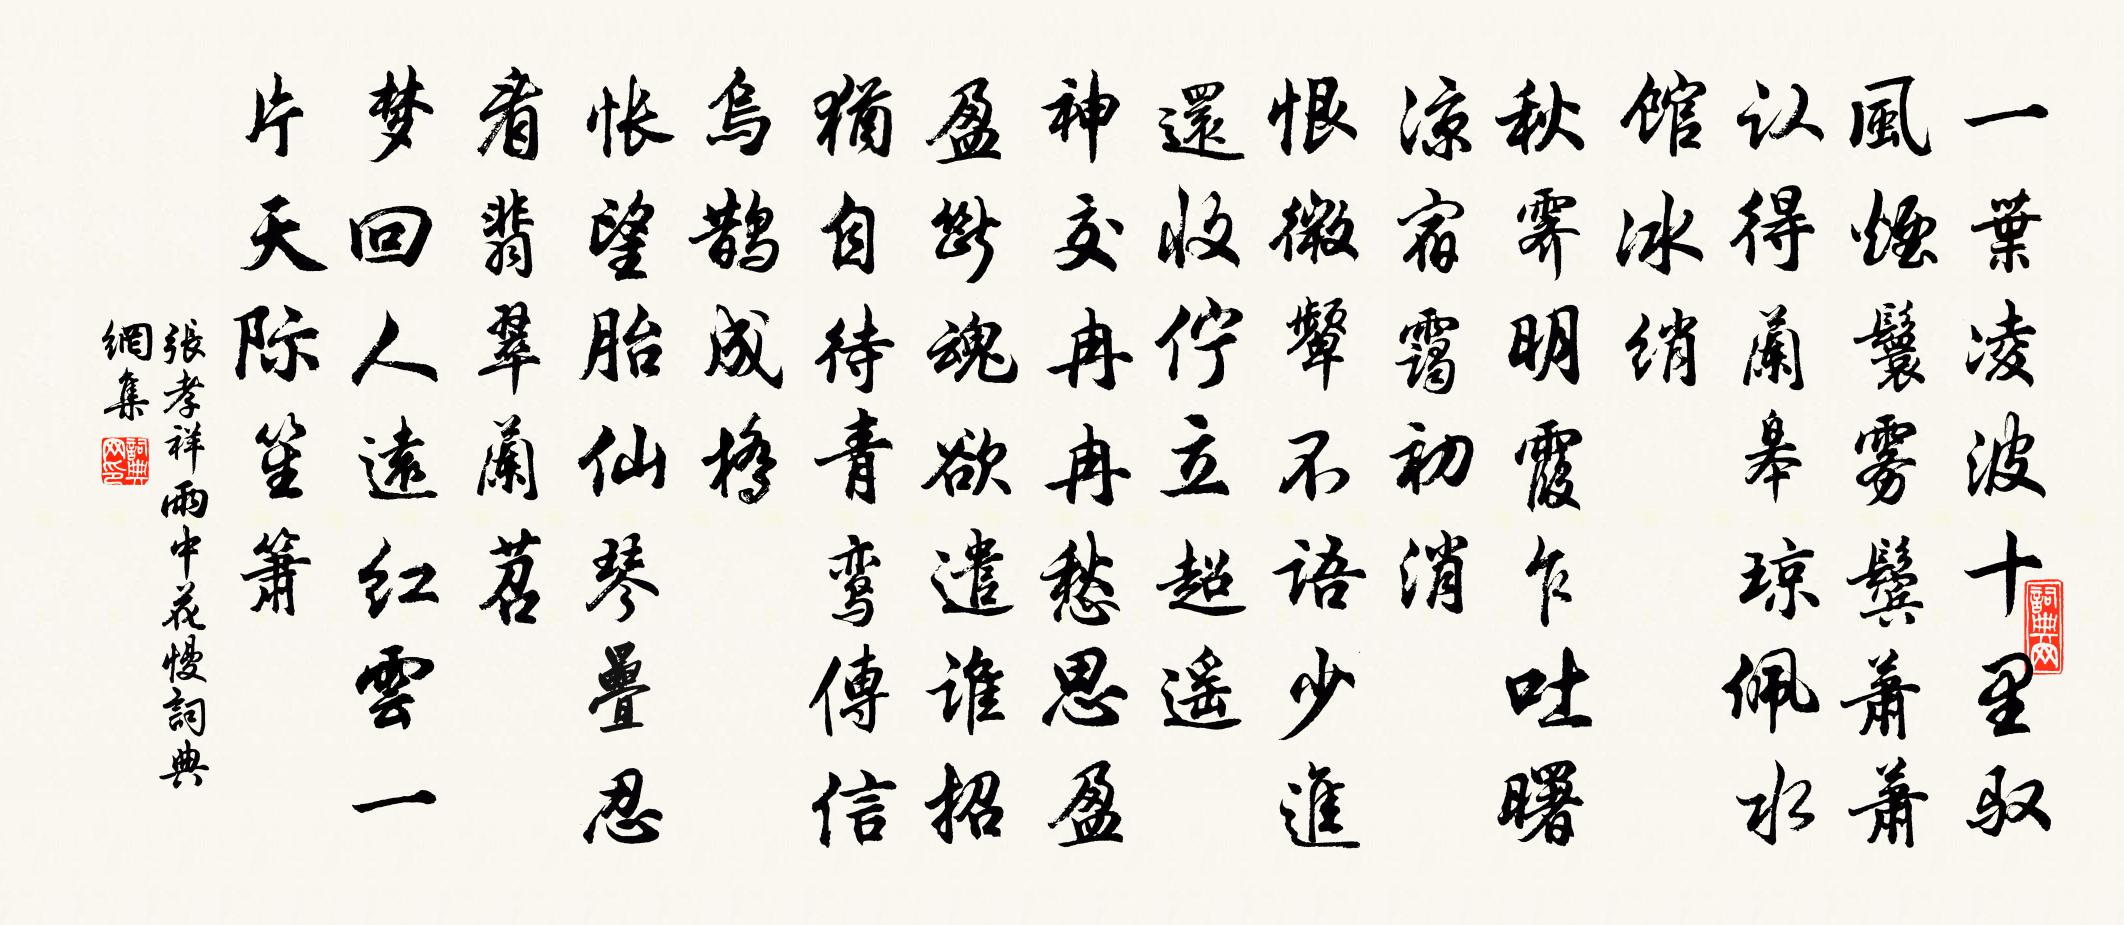 一葉凌波十里驭
風煙鬟雾鬓蕭蕭
认得蘭皋琼佩水
馆冰绡
秋霁明霞乍吐曙
凉宿靄初消
恨微颦不語少進
還收佇立超遥
神交冉冉愁思盈
盈断魂欲遣谁招
猶自待青鸾傳信
烏鹊成橋
怅望胎仙琴疊忍
看翡翠蘭苕
梦回人遠红雲一
片天际笙簫
張孝祥雨中花慢詞典
網集
詞典网
詞典网印